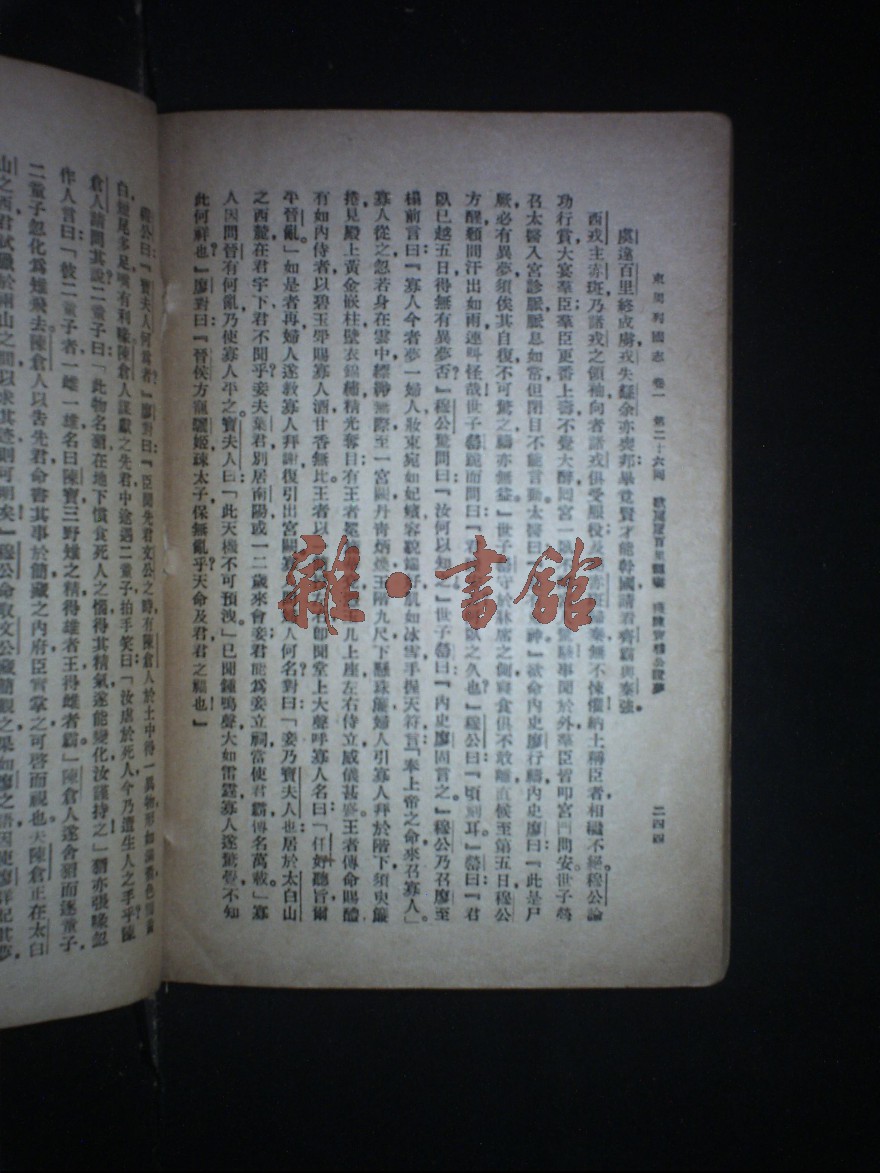 東周列國志 卷一 第二十六回 歌扊扅百里認妻 獲陳寶穆公證夢 二四四
虞違百里終成虜戎失繇余亦喪邦畢竟賢才能幹國請看齊霸與秦強
西戎主赤斑乃諸戎之領袖向者諸戎俱受服役
無不悚懼納土稱臣者相繼不絕穆公論
功行賞大宴羣臣羣臣更番上壽不覺大醉回宮一
事聞於外羣臣皆叩宮門問安世子罃
召太醫入宮診脈脈息如常但閉目不能言動太醫曰
神」欲命內史廖行禱內史廖曰『此是尸
厥必有異夢須俟其自復不可驚之禱亦無益』世子
守
牀席之側寢食俱不敢離直候至第五日穆公
方醒顙間汗出如雨連叫怪哉世子罃跪而問曰『
之久也』穆公曰『頃刻耳』罃曰『君
臥已越五日得無有異夢否』穆公驚問曰『汝何以知之』世子罃曰『內史廖固言之』穆公乃召廖至
榻前言曰『寡人今者夢一婦人妝束宛如妃嬪容貌端
肌如冰雪手握天符言『奉上帝之命來召寡人』
寡人從之忽若身在雲中縹緲無際至一宮闕丹青炳煥玉階九尺下懸珠簾婦人引寡人拜於階下須臾簾
捲見殿上黃金嵌柱壁衣錦繡精光奪目有王者冕
几上座左右侍立威儀甚盛王者傳命賜醴
有如內侍者以碧玉斝賜寡人酒甘香無比王者以一
即聞堂上大聲呼寡人名曰『任好聽旨爾
平晉亂』如是者再婦人遂教寡人拜謝復引出宮闕
人何名對曰『妾乃寶夫人也居於太白山
之西麓在君宇下君不聞乎妾夫葉君別居南陽或一二歲來會妾君能為妾立祠當使君霸傳名萬載』寡
人因問晉有何亂乃使寡人平之寶夫人曰『此天機不可預洩』已聞鐘鳴聲大如雷霆寡人遂驚覺不知
此何祥也』廖對曰『晉侯方寵驪姬疎太子保無亂乎天命及君君之福也』
穆公曰『寶夫人何為者』廖對曰『臣聞先君文公之時有陳倉人於土中得一異物形如滿囊色間黃
白短尾多足嘴有利喙陳倉人謀獻之先君中途遇二童子拍手笑曰『汝虐於死人今乃遭生人之手乎陳
倉人請問其說二童子曰『此物名猬在地下慣食死人之腦得其精氣遂能變化汝謹持之』猬亦張喙忽
作人言曰『彼二童子者一雌一雄名曰陳寶三野雉之精得雄者王得雌者霸』陳倉人遂舍猬而逐童子
二童子忽化為雉飛去陳倉人以告先君命書其事於簡藏之內府臣實掌之可啓而視也夫陳倉正在太白
山之西君試獵於兩山之間以求其迹則可明矣』穆公命取文公藏簡觀之果如廖之語因使廖詳記其夢
雜·書館